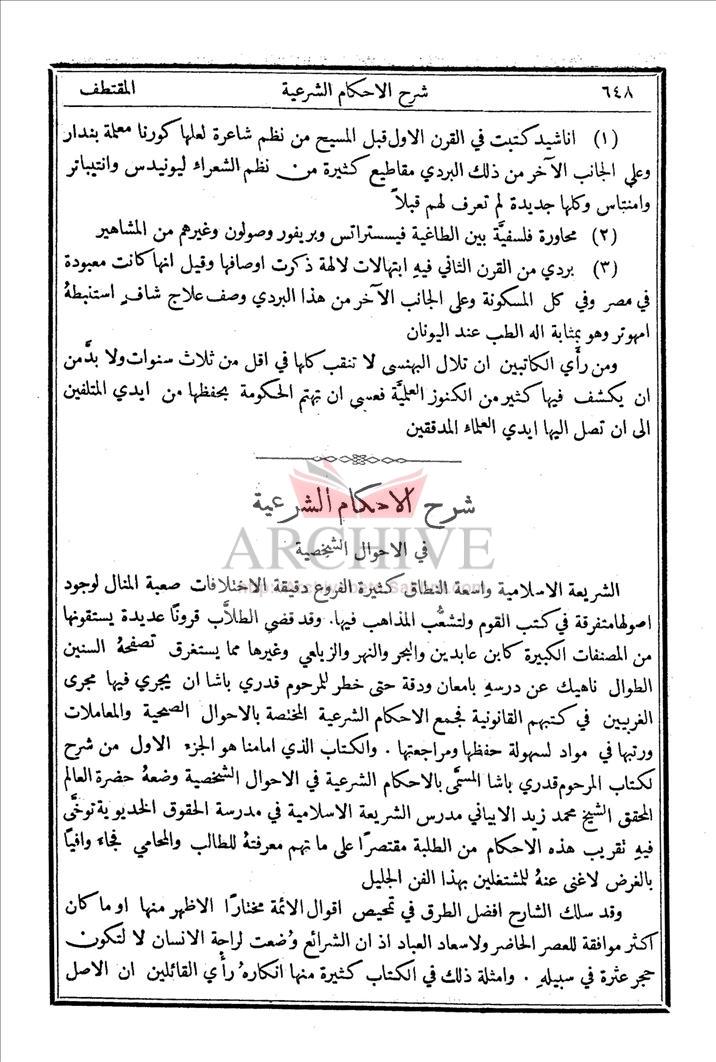 ٦٤٨ شرح الاحكام الشرعية المقتطف
(١) اناشيد كتبت في القرن الاول قبل المسيح من نظم شاعرة لعلها كورنا معلمة بندار
وعلى الجانب الآخر من ذلك البردي مقاطيع كثيرة من نظم الشعراء ليونيدس وانتيباتر
وامنتاس وكلها جديدة لم تعرف لهم قبلاً
(٢) محاورة فلسفيَّة بين الطاغية فيسستراتس وبريفور وصولون وغيرهم من المشاهير
(٣) بردي من القرن الثاني فيهِ ابتهالات لالهة ذكرت اوصافها وقيل انها كانت معبودة
في مصر وفي كل المسكونة وعلى الجانب الآخر من هذا البردي وصف علاج شافٍ استنبطهُ
امهوتر وهو بمثابة اله الطب عند اليونان
ومن رأي الكاتبين ان تلال البهنسى لا تنقب كلها في اقل من ثلاث سنوات ولا بدَّ من
ان يكشف فيها كثير من الكنوز العلميَّة فعسى ان تهتم الحكومة بحفظها من ايدي المتلفين
الى ان تصل اليها ايدي العلماء المدققين
شرح الاحكام الشرعية
ARCHIVE
في الاحوال الشخصية
الشريعة الاسلامية واسعة النطاق كثيرة الفروع دقيقة الاختلافات صعبة المنال لوجود
اصولها متفرقة في كتب القوم ولتشعُّب المذاهب فيها. وقد قضي الطلَّاب قرونًا عديدة يستقونها
من المصنفات الكبيرة كابن عابدين والبحر والنهر والزيلعي وغيرها مما يستغرق تصفحهُ السنين
الطوال ناهيك عن درسهِ بامعان ودقة حتى خطر للمرحوم قدري باشا ان يجري فيها مجرى
الغربيين في كتبهم القانونية فجمع الاحكام الشرعية المختصة بالاحوال الصحية والمعاملات
ورتبها في مواد لسهولة حفظها ومراجعتها. والكتاب الذي امامنا هو الجزء الاول من شرح
لكتاب المرحوم قدري باشا المسمَّى بالاحكام الشرعية في الاحوال الشخصية وضعهُ حضرة العالم
المحقق الشيخ محمد زيد الابياني مدرس الشريعة الاسلامية في مدرسة الحقوق الخديوية توخَّى
فيهِ تقريب هذه الاحكام من الطلبة مقتصرًا على ما تهم معرفتهُ للطالب والمحامي فجاءَ وافيًا
بالغرض لاغنى عنهُ للمشتغلين بهذا الفن الجليل
وقد سلك الشارح افضل الطرق في تمحيص اقوال الائمة مختارًا الاظهر منها او ما كان
اكثر موافقة للعصر الحاضر ولاسعاد العباد اذ ان الشرائع وُضعت لراحة الانسان لا لتكون
حجر عثرة في سبيلهِ. وامثلة ذلك في الكتاب كثيرة منها انكارهُ رأي القائلين ان الاصل